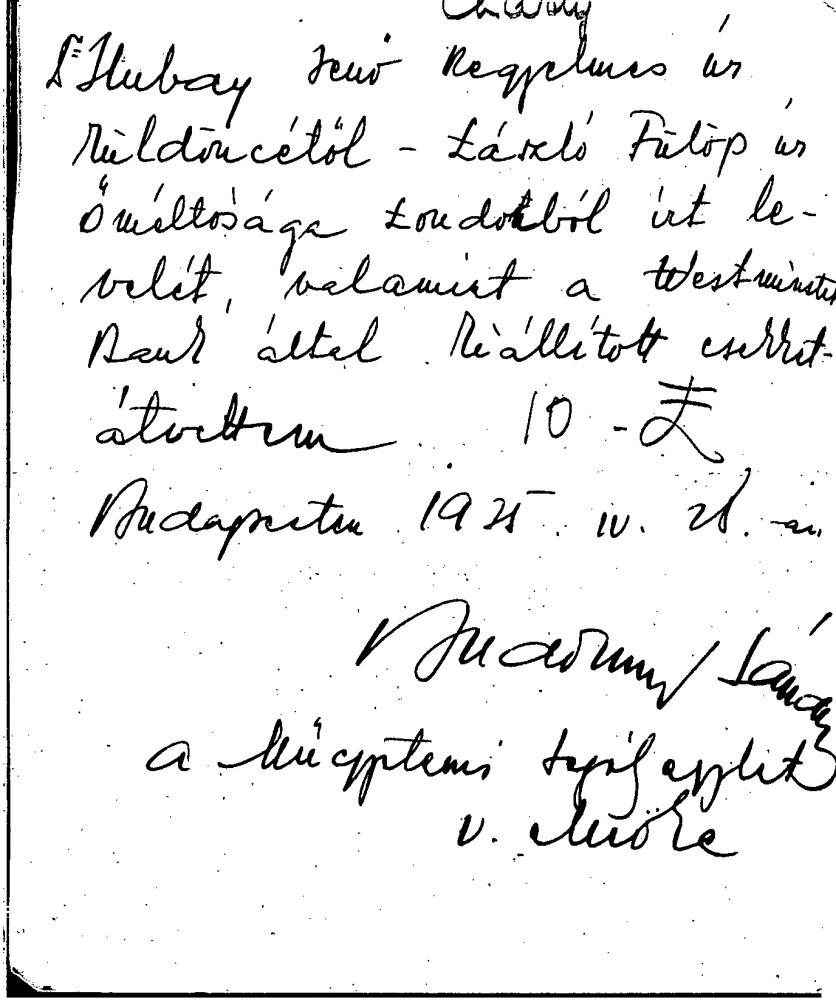 Dr Hubay Jenő Kegyelmes úr
küldöncétől – László Fülöp úr
Őméltósága Londonból írt le-
velét, valamint a Westminster
Bank által kiállított csekket
átvettem 10 - £
Budapesten 1925. IV. 28.-án.
Sándor
a Műegyetemi segélyegylet
v. elnöke